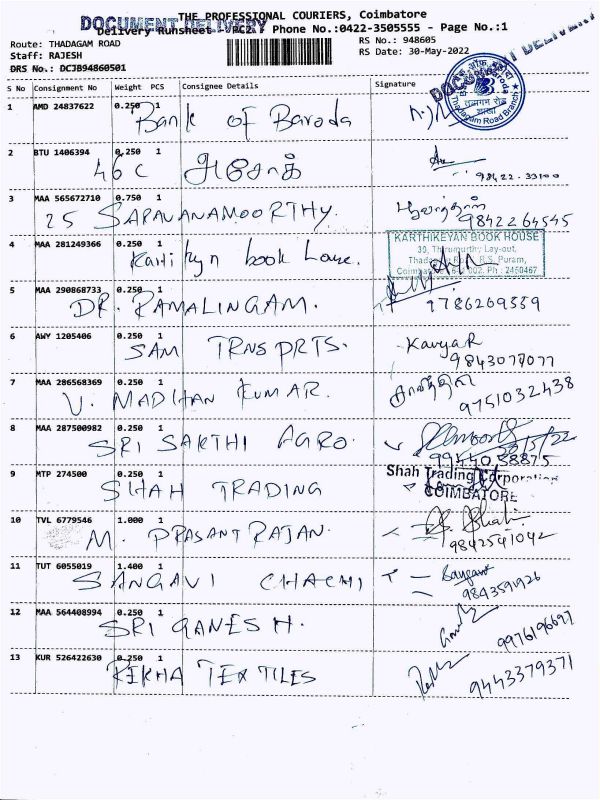 THE PROFESSIONAL COURIERS, Coimbatore
DOCUMENT DELIVERY
Delivery Runsheet - PC2 Phone No.:0422-3505555 - Page No.:1
Route: THADAGAM ROAD
RS No.: 948605
Staff: RAJESH
RS Date: 30-May-2022
DRS No.: DCJB94860501
DOCUMENT DELIVERY
S No Consignment No Weight PCS Consignee Details Signature
1 AMD 24837622 0.250 1
Bank of Baroda
Thadagam Road Branch
2 BTU 1406394 0.250 1
46 C அசோக்
98422-33100
3 MAA 565672710 0.750 1
25 SARAVANAMOORTHY.
9842264545
4 MAA 281249366 0.250 1
Karti kyn book house.
KARTHIKEYAN BOOK HOUSE
30, Thirumurthy Lay-out,
R.S. Puram,
Ph : 2450467
5 MAA 290868733 0.250 1
DR. RAMALINGAM.
9786269559
6 AWY 1205406 0.250 1
SAM TRNS PRTS.
Kavya R
9843077077
7 MAA 286568369 0.250 1
V. MADHAN KUMAR.
9751032438
8 MAA 287500982 0.250 1
SRI SAKTHI AGRO.
30/5/22
9944038875
9 MTP 274500 0.250 1
SHAH TRADING
Shah Trading Corporation
COIMBATORE
10 TVL 6779546 1.000 1
M. PRASANT RAJAN.
9842541042
11 TUT 6055019 1.400 1
SANGAVI CHACHI
9843591926
12 MAA 564408994 0.250 1
SRI GANESH.
9976196697
13 KUR 526422630 0.250 1
REKHA TEXTILES
9443379371